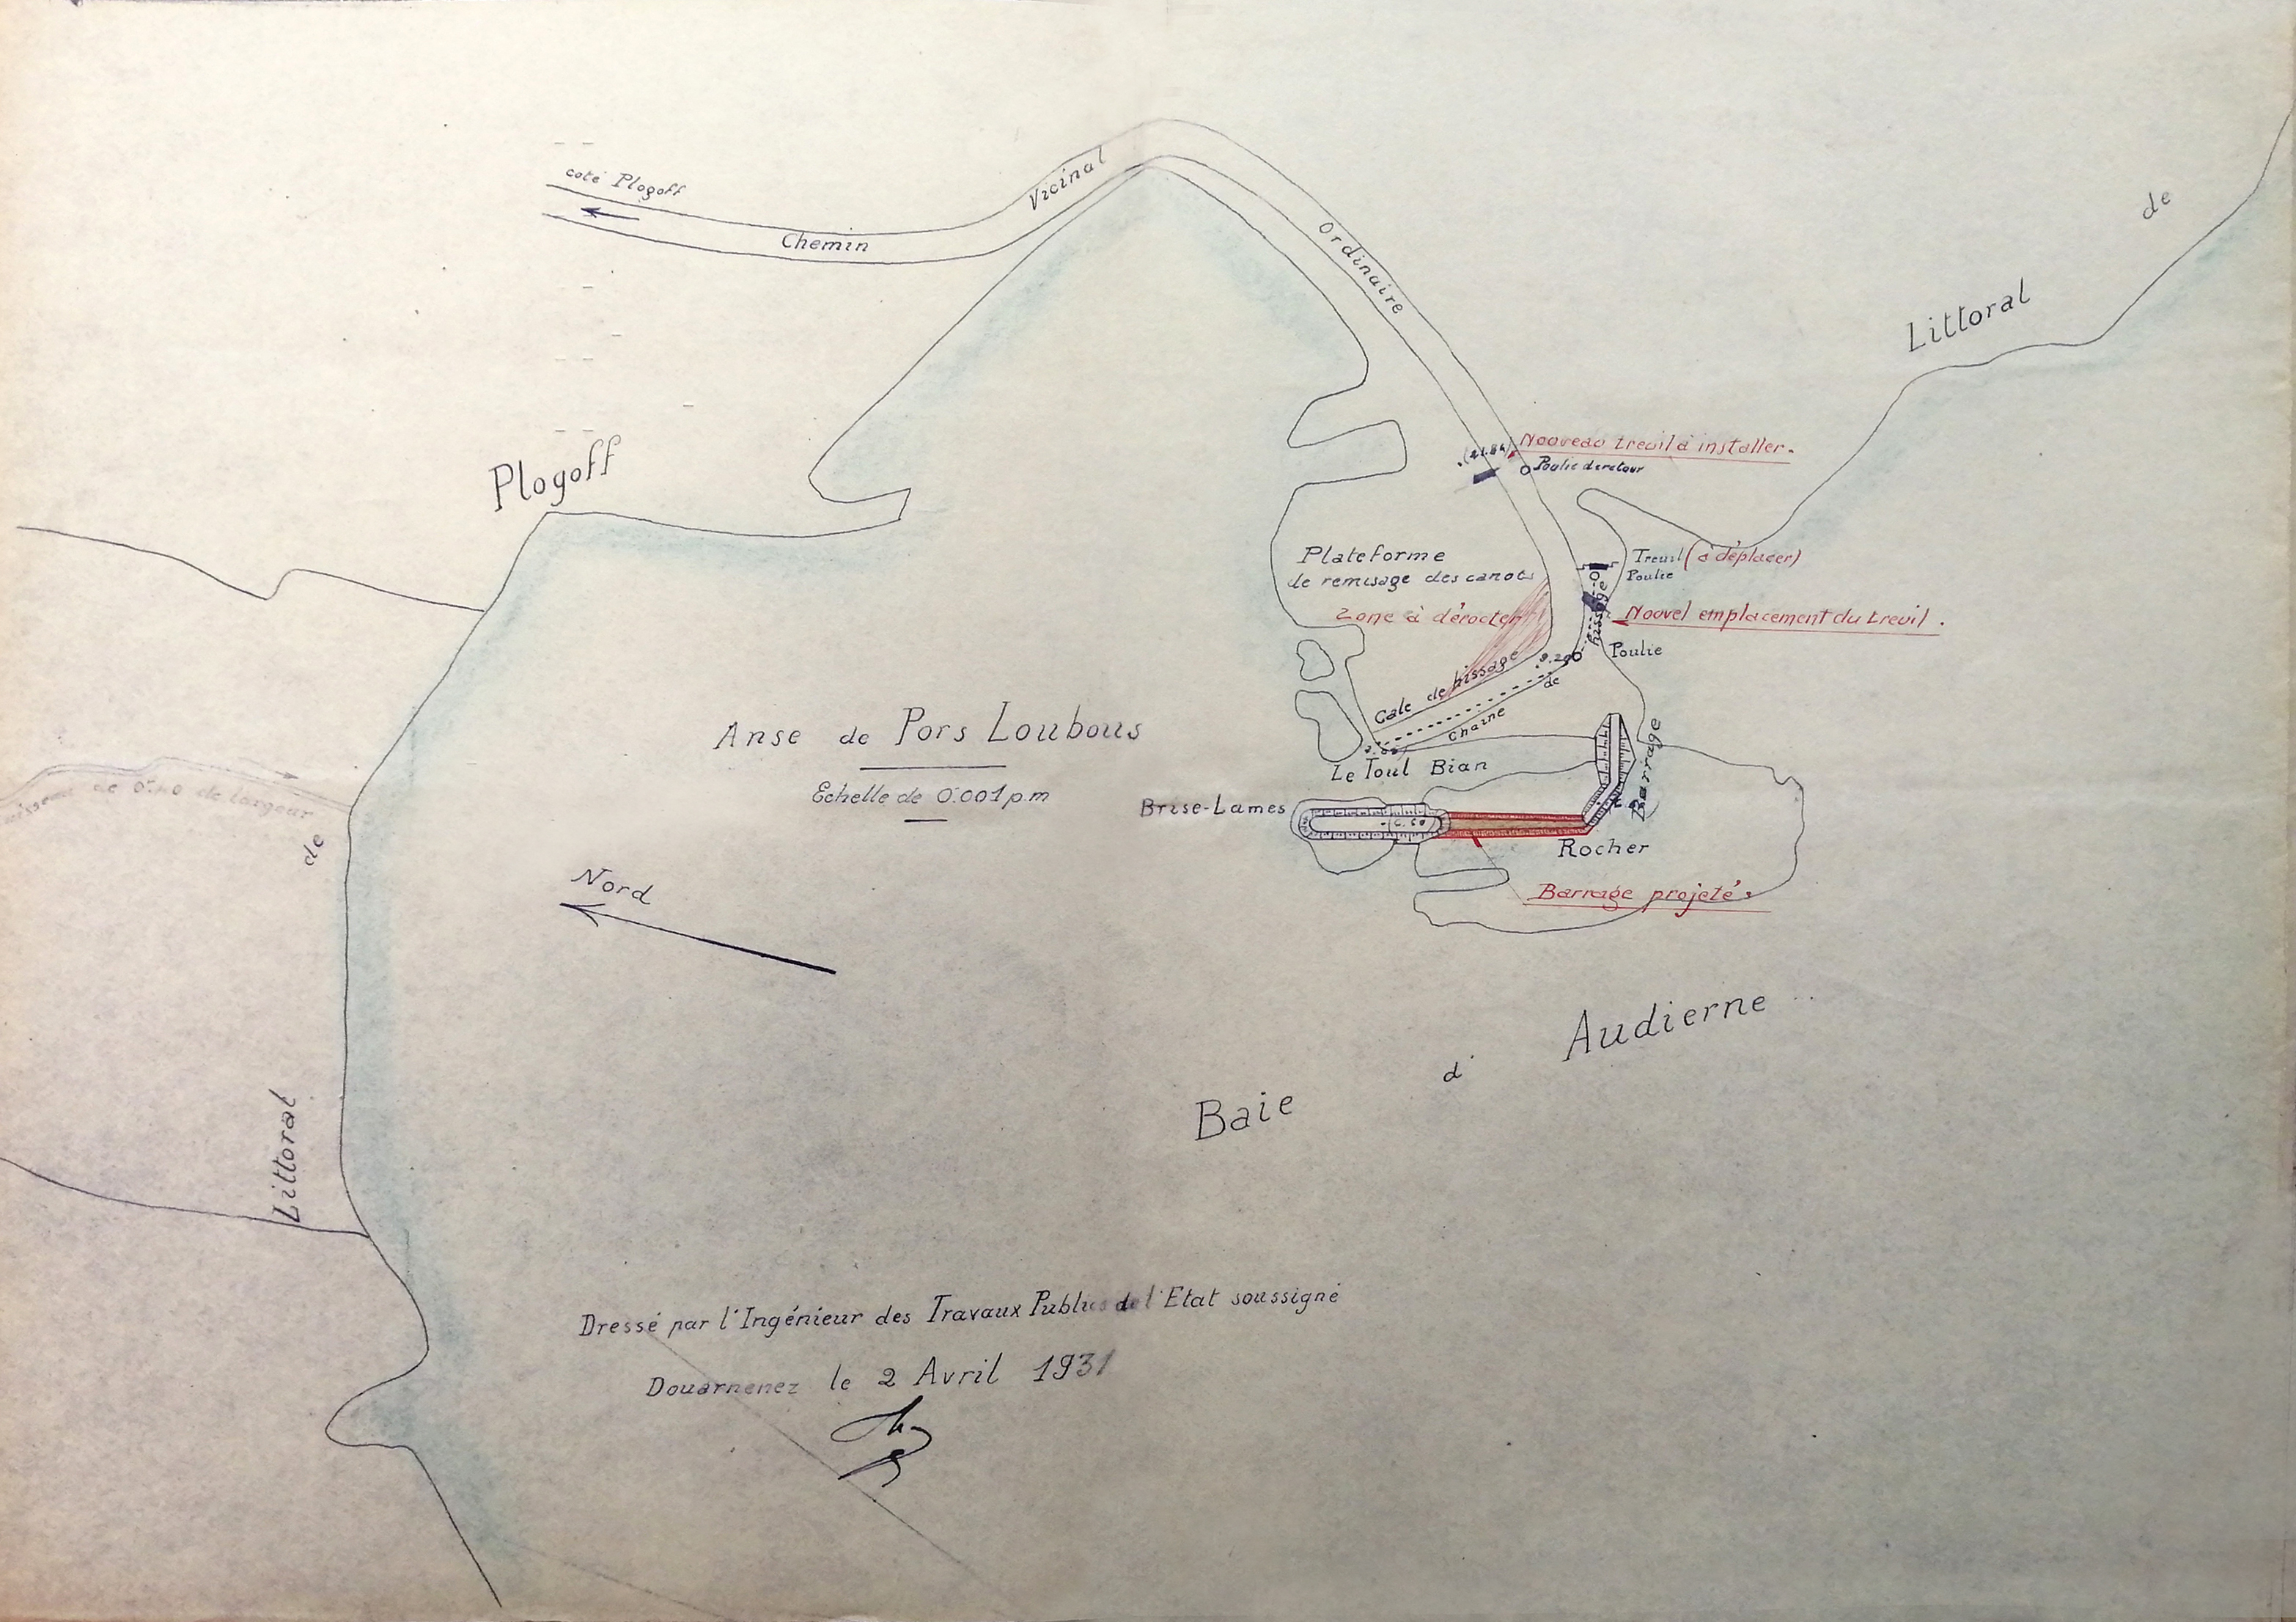 coté Plogoff
Chemin
Vicinal
Ordinaire
Littoral
de
Plogoff
de
Littoral
(21.84)
Nouveau treuil à installer.
Poulie de retour
Plateforme
de remisage des canots
Treuil (à déplacer)
Poulie
Zone à dérocter
Nouvel emplacement du treuil.
hissage
Poulie
9.20
Cale de hissage
de
Chaine
Anse de Pors Loubous
Echelle de 0.001 p.m
Le Toul Bian
Barrage
Brise-Lames
Rocher
Barrage projeté.
de largeur
Nord
Baie
d'
Audierne
Dressé par l'Ingénieur des Travaux Publics de l'Etat soussigné
Douarnenez le 2 Avril 1931